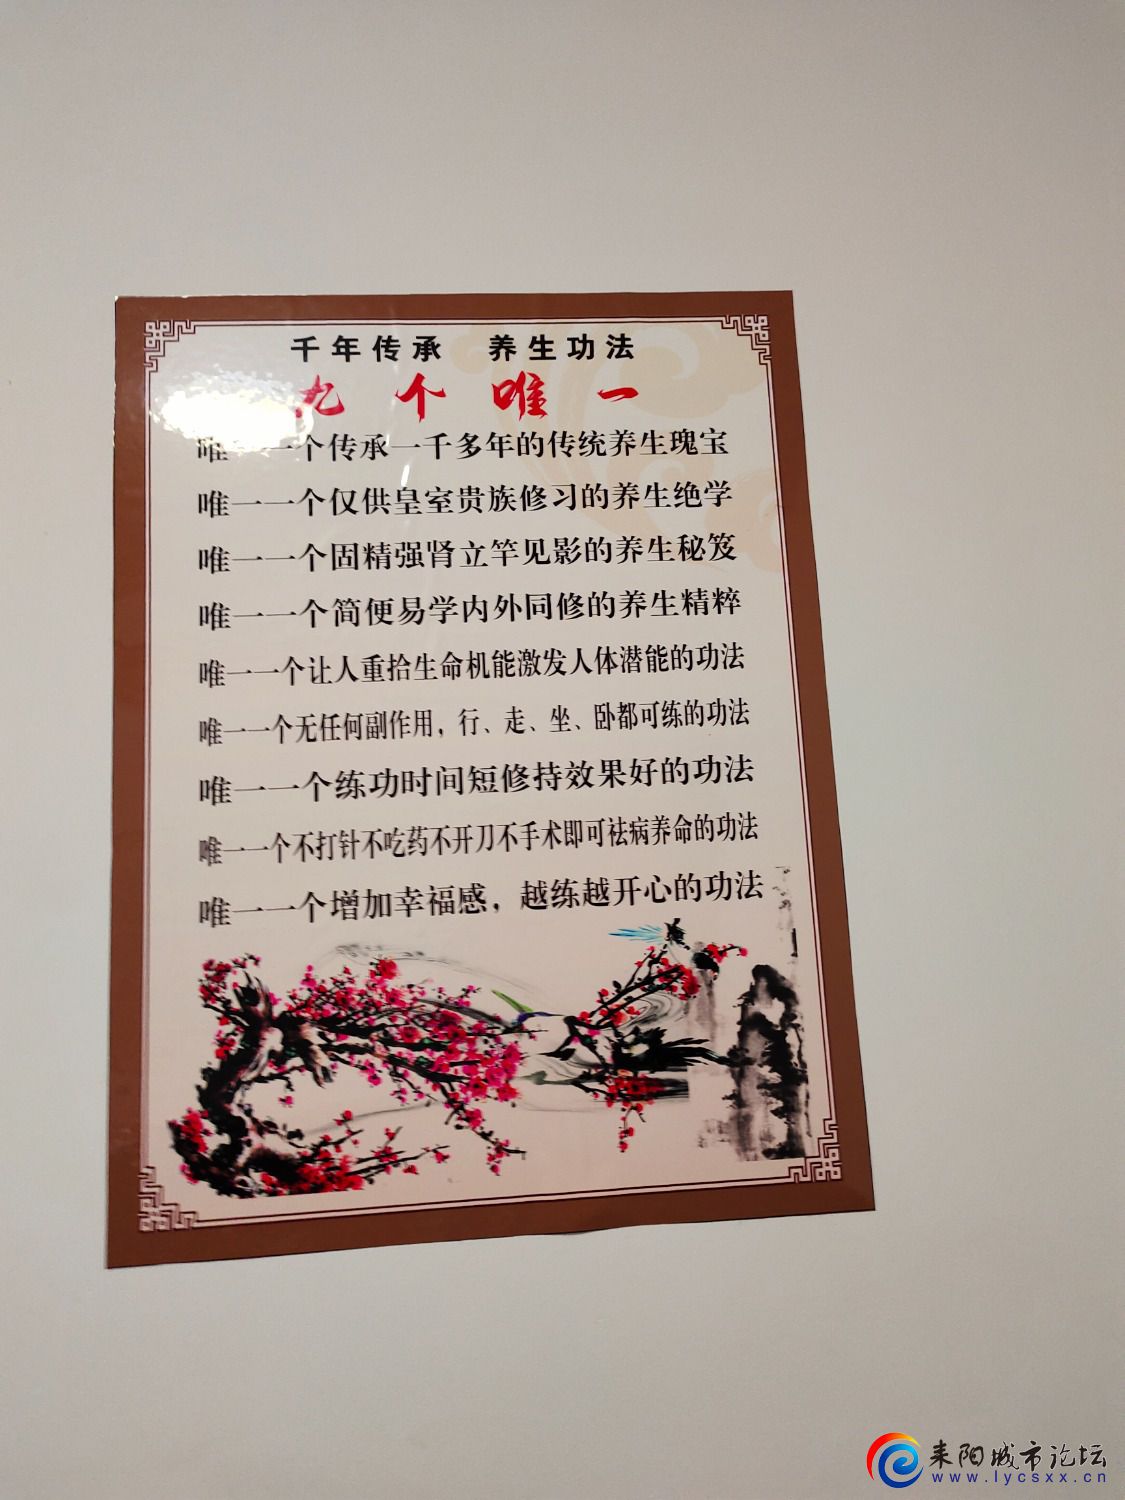 千年传承 养生功法
九个唯一
唯一一个传承一千多年的传统养生瑰宝
唯一一个仅供皇室贵族修习的养生绝学
唯一一个固精强肾立竿见影的养生秘笈
唯一一个简便易学内外同修的养生精粹
唯一一个让人重拾生命机能激发人体潜能的功法
唯一一个无任何副作用，行、走、坐、卧都可练的功法
唯一一个练功时间短修持效果好的功法
唯一一个不打针不吃药不开刀不手术即可祛病养命的功法
唯一一个增加幸福感，越练越开心的功法
耒阳城市论坛
www.lycsxx.cn